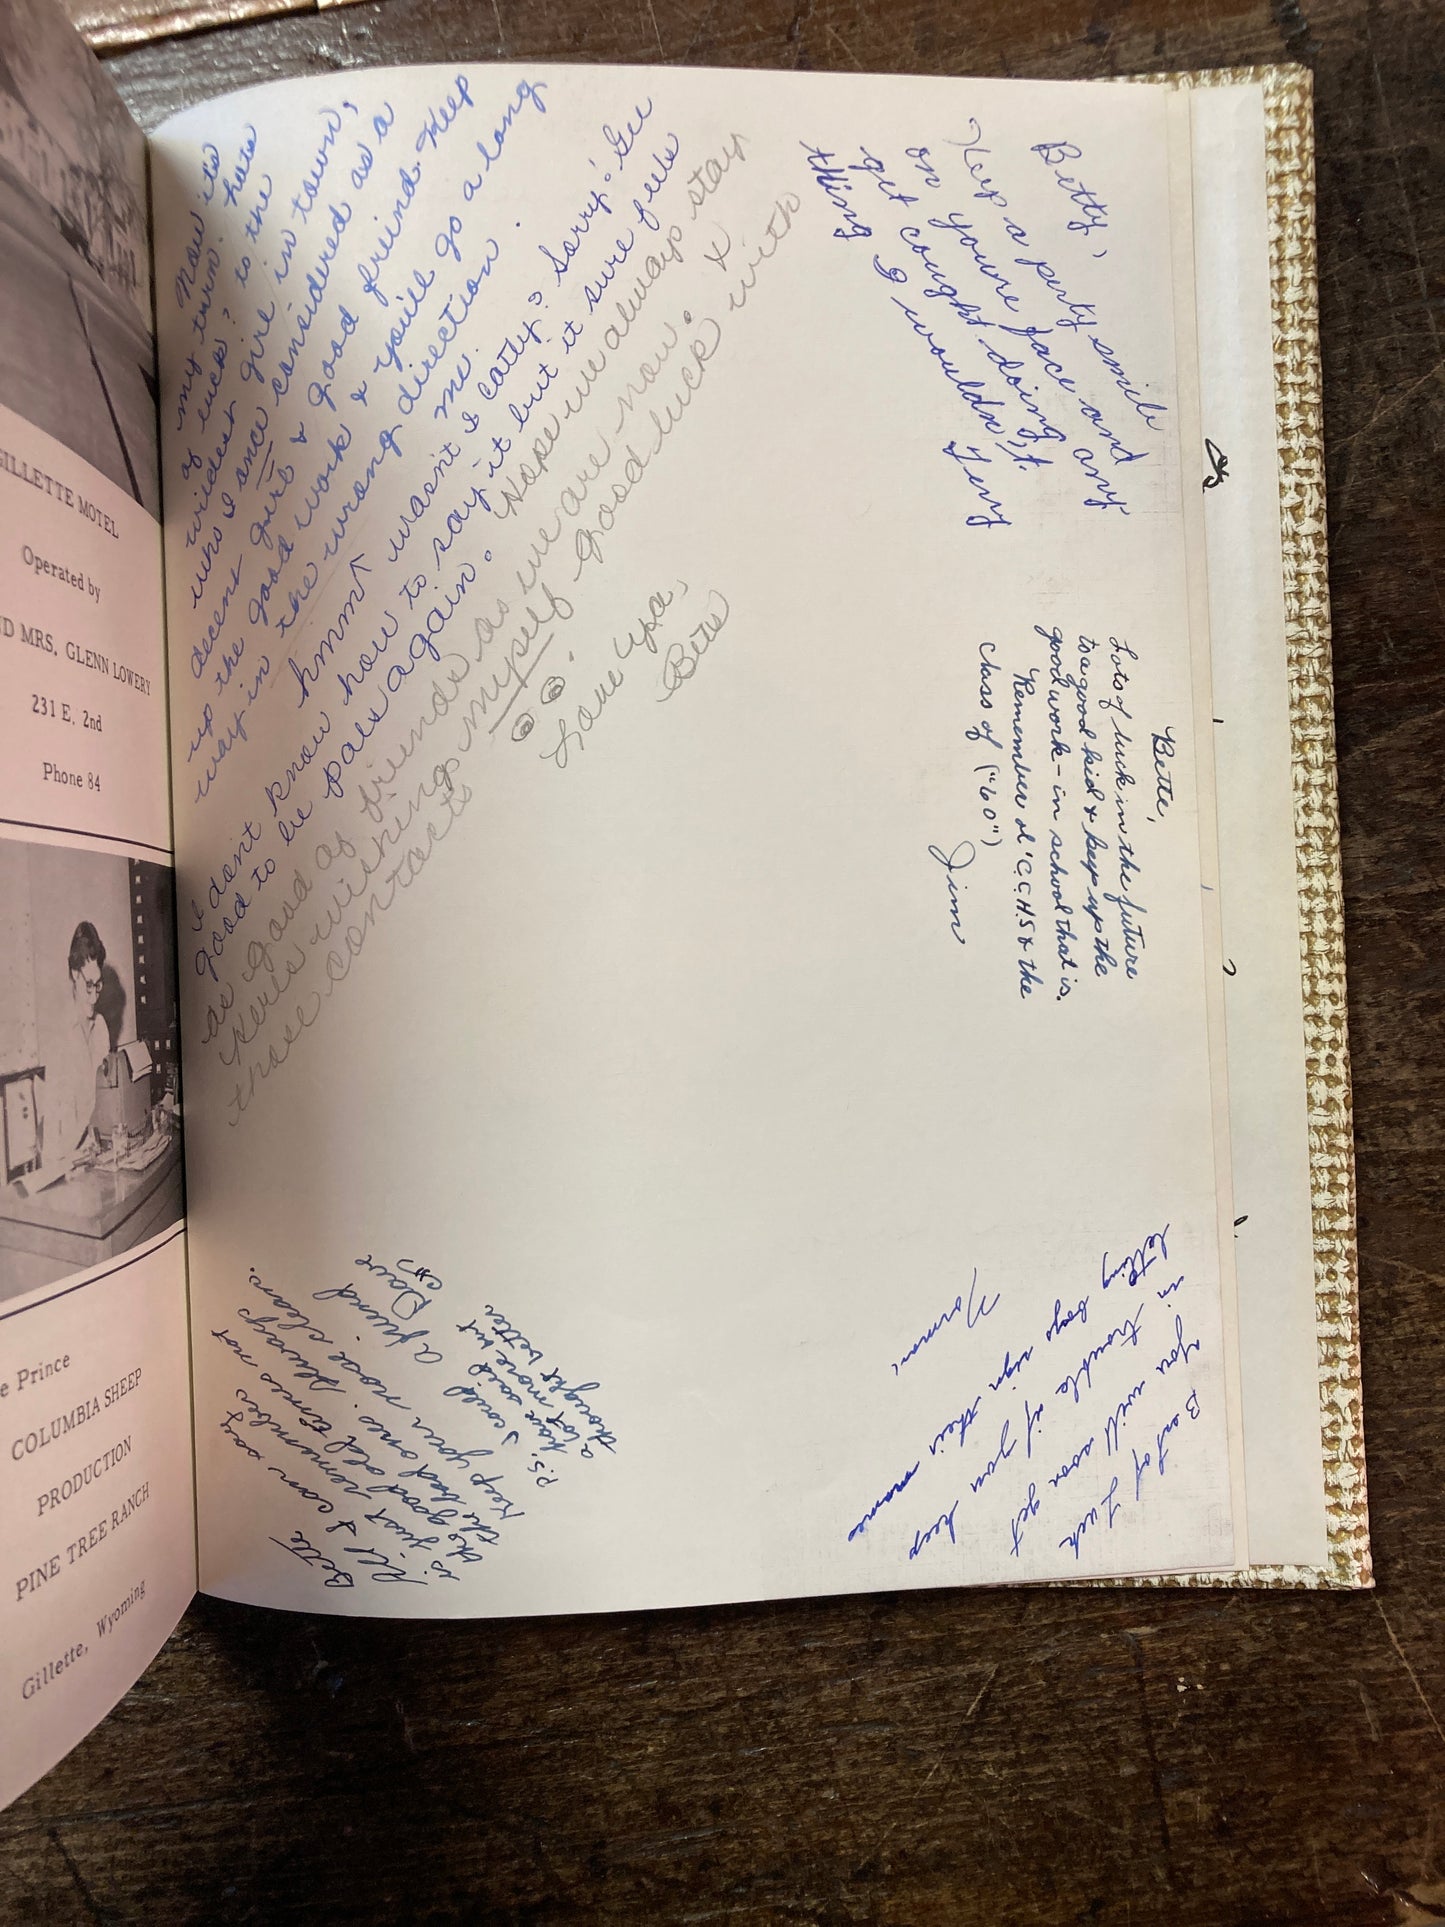 GILLETTE MOTEL
Operated by
ND MRS. GLENN LOWERY
231 E. 2nd
Phone 84
e Prince
COLUMBIA SHEEP
PRODUCTION
PINE TREE RANCH
Gillette, Wyoming
Now it's
my turn. hats
of luck? to the
widest girl in town,
who I once considered as a
decent girl & good friend. Keep
up the good work & you'll go a long
way in the wrong direction.
hmm wasn't I catty? Sorry! Gee
I don't know how to say it but it sure feels
good to be pals again. Hope we always stay
as good of friends as we are now. &
here's wishing myself good luck with
those contacts.
Love Ya,
Bets
Betty,
Keep a perty smile
on youre face and
get cought doing any
thing I wouldn't.
Jerry
Bette,
Lots of luck in the future
to a good kid & keep up the
good work - in school that is.
Remember ol' C.C.H.S & the
class of ("60")
Jim
Bette
All I can say
is just remember
the good old times not
the bad ones. Always
Keep your nose clean.
A friend
Dave
P.S. I could
have said
a lot more but
thought better.
Best of Luck
You will soon get
in trouble if you keep
letting boys sign their name
Norman,